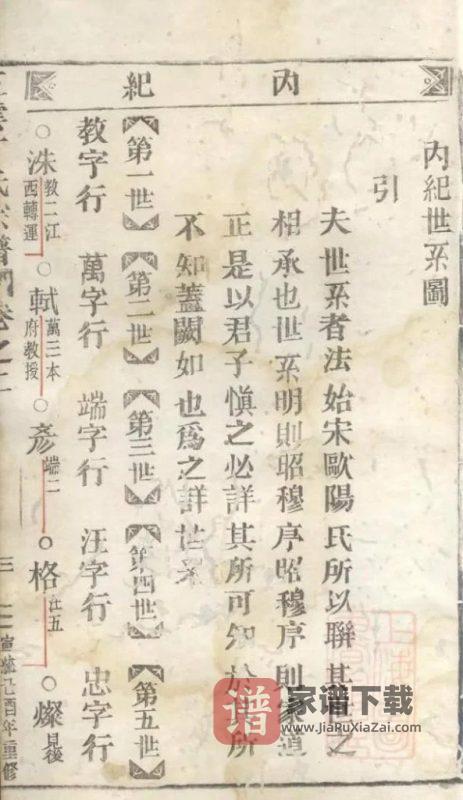 內紀
內紀世系圖
引
夫世系者法始宋歐陽氏所以聯其世之
相承也世系明則昭穆序昭穆序則家道
正是以君子慎之必詳其所可知於其所
不知蓋闕如也爲之詳世系
第一世 第二世 第三世 第四世 第五世
教字行 萬字行 端字行 汪字行 忠字行
洙 教二江西轉運 軾 萬三本府教授 彦 端二 格 汪五 燦 見後
氏宗譜 卷之二
三
宣統己酉年重修
譜
家谱下载
www.JiaRuXiaZai.com